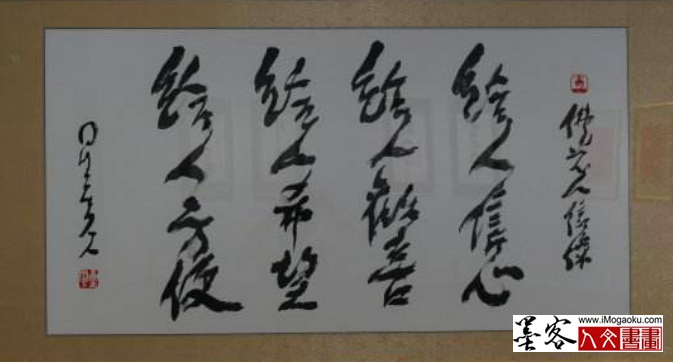 佛光人信條
給人信心
給人歡喜
給人希望
給人方便
墨客
www.iMogaoku.com
人文書畫